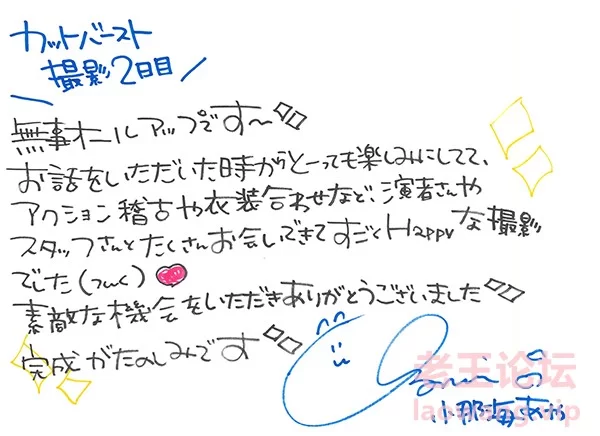 カットバースト
撮影2日目
無事オールアップです〜
お話をいただいた時からとーっても楽しみにしてて、
アクション稽古や衣装合わせなど、演者さんや
スタッフさんとたくさんお会いできてすごくHappyな撮影
でした(つ㇏く)
素敵な機会をいただきありがとうございました
完成がたのしみです
小那海あや
老王论坛
laowang.vip